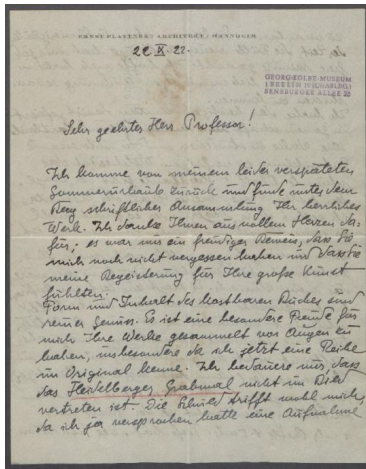 ERNST PLATTNER / ARCHITEKT / MANNHEIM
22 IX. 22.
GEORG-KOLBE-MUSEUM
1 BERLIN 19 (CHARLBG.)
SENSBURGER ALLEE 25
Sehr geehrter Herr Professor!
Ich komme von meinem leider verspäteten
Sommerurlaub zurück und finde unter dem
Berg schriftlicher Ansammlung Ihr herrliches
Werk. Ich danke Ihnen aus vollem Herzen da-
für; es war mir ein freudiger Beweis, dass Sie
mich noch nicht vergessen haben und dass Sie
meine Begeisterung für Ihre große Kunst
fühlten.
Form und Inhalt des kostbaren Buches sind
reiner Genuss. Es ist eine besondere Freude für
mich Ihre Werke gesammelt vor Augen zu
haben, insbesondere da ich jetzt eine Reihe
im Original kenne. Ich bedauere nur, dass
das Heidelberger Grabmal nicht im Bild
vertreten ist. Die Schuld trifft wohl mich,
da ich ja versprochen hatte eine Aufnahme